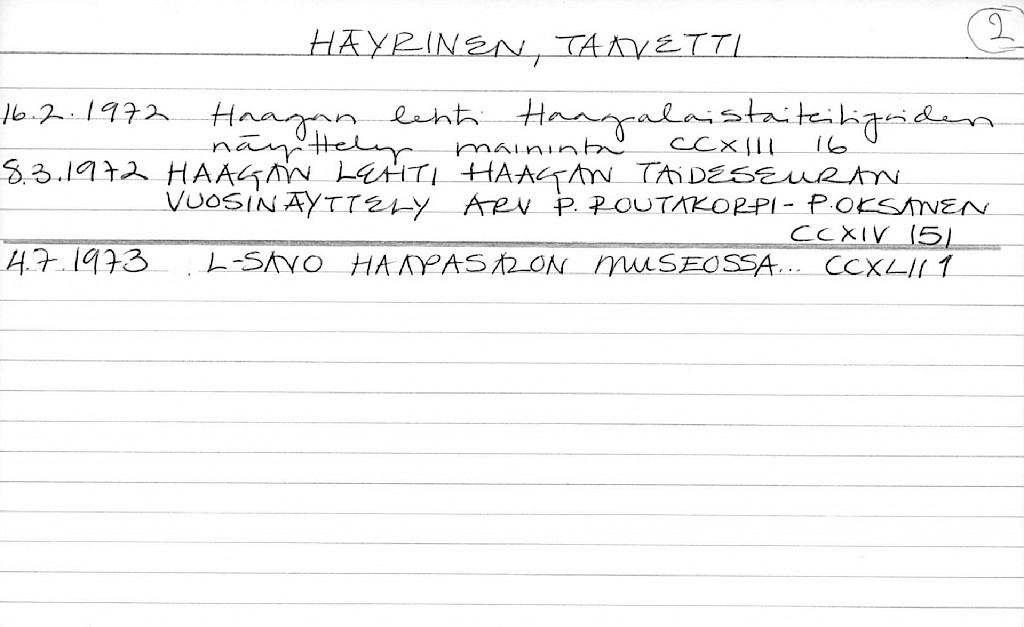 2
HÄYRINEN, TAAVETTI
16.2.1972 Haagan lehti Haagalaistaiteilijoiden
näyttely maininta CCXIII 16
8.3.1972 HAAGAN LEHTI HAAGAN TAIDESEURAN
VUOSINÄYTTELY ARV P. ROUTAKORPI - P. OKSANEN
CCXIV 151
4.7.1973 L-SAVO HAAPASALON MUSEOSSA... CCXLII 1